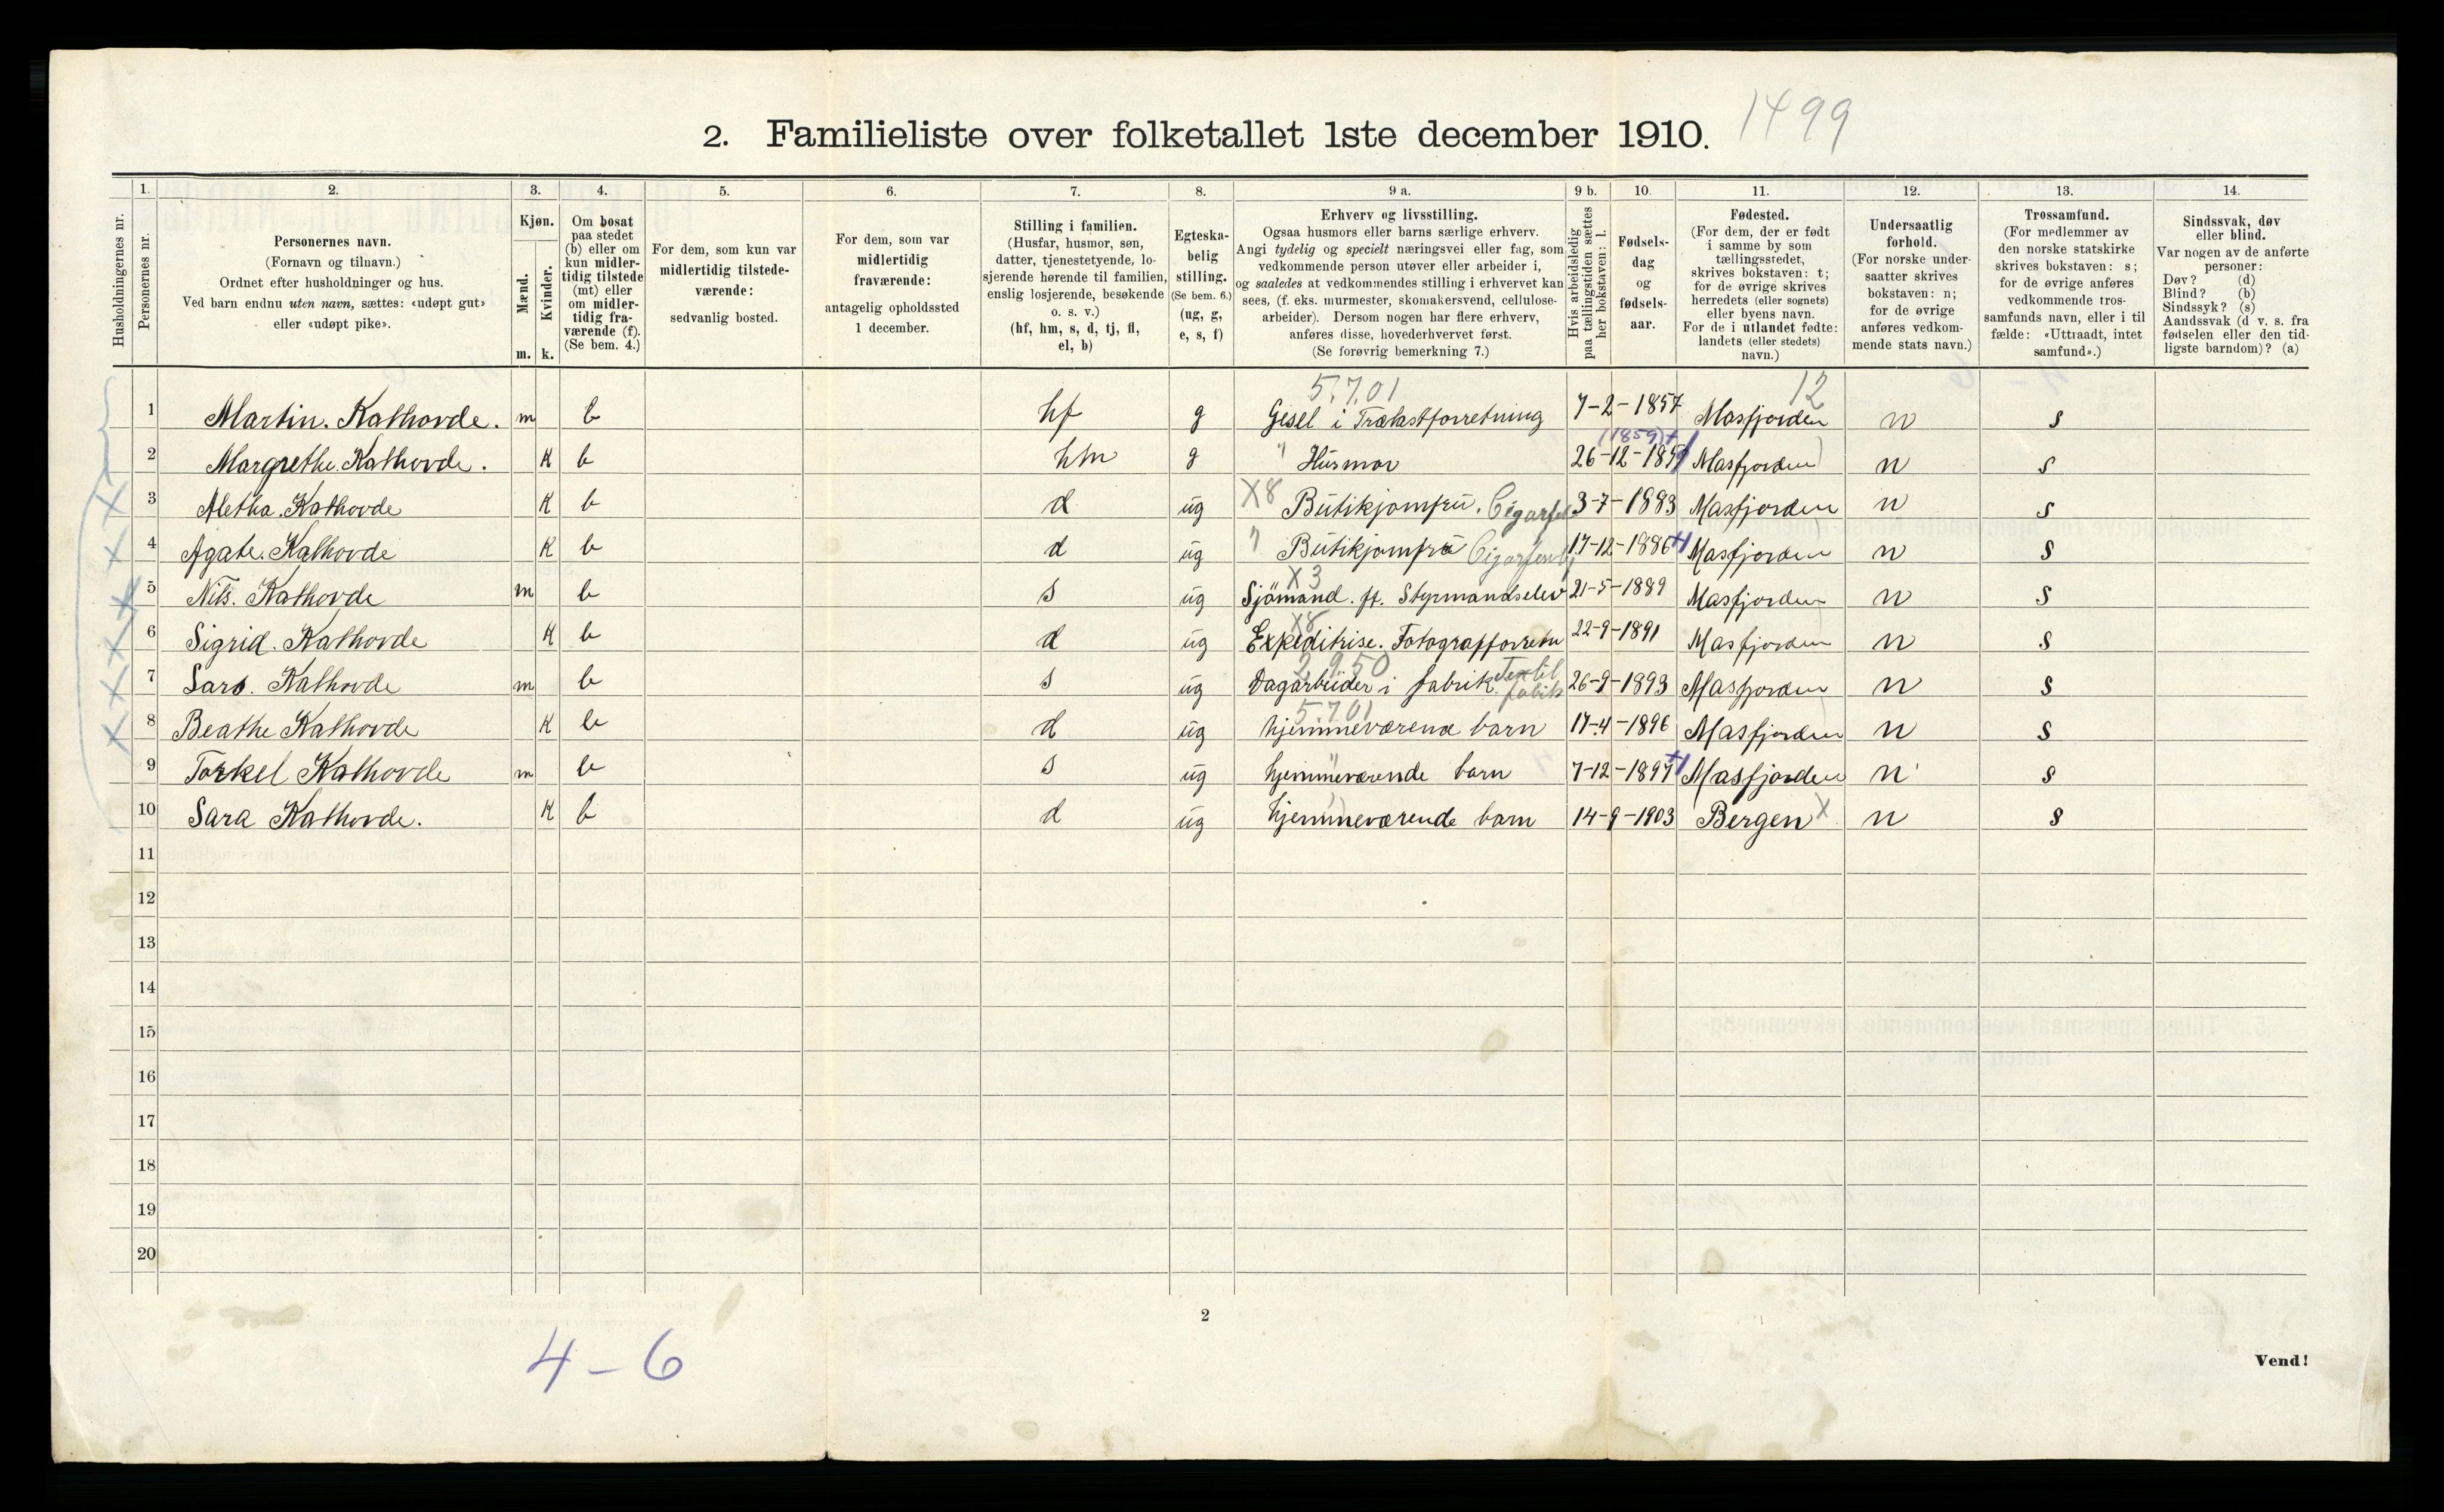 2. Familieliste over folketallet 1ste december 1910. 1499
1. 2. 3. 4. 5. 6. 7. 8. 9 a. 9 b. 10. 11. 12. 13. 14.
Husholdningernes nr.
Personernes nr.
Personernes navn.
(Fornavn og tilnavn.)
Ordnet efter husholdninger og hus.
Ved barn endnu uten navn, sættes: «udøpt gut»
eller «udøpt pike».
Kjøn.
Mænd.
Kvinder.
m. k.
Om bosat
paa stedet
(b) eller om
kun midler-
tidig tilstede
(mt) eller
om midler-
tidig fra-
værende (f).
(Se bem. 4.)
For dem, som kun var
midlertidig tilstede-
værende:
sedvanlig bosted.
For dem, som var
midlertidig
fraværende:
antagelig opholdssted
1 december.
Stilling i familien.
(Husfar, husmor, søn,
datter, tjenestetyende, lo-
sjerende hørende til familien,
enslig losjerende, besøkende
o. s. v.)
(hf, hm, s, d, tj, fl,
el, b)
Egteska-
belig
stilling.
(Se bem. 6.)
(ug, g,
e, s, f)
Erhverv og livsstilling.
Ogsaa husmors eller barns særlige erhverv.
Angi tydelig og specielt næringsvei eller fag, som
vedkommende person utøver eller arbeider i,
og saaledes at vedkommendes stilling i erhvervet kan
sees, (f. eks. murmester, skomakersvend, cellulose-
arbeider). Dersom nogen har flere erhverv,
anføres disse, hovederhvervet først.
(Se forøvrig bemerkning 7.)
Hvis arbeidsledig
paa tællingstiden sættes
her bokstaven: l.
Fødsels-
dag
og
fødsels-
aar.
Fødested.
(For dem, der er født
i samme by som
tællingsstedet,
skrives bokstaven: t;
for de øvrige skrives
herredets (eller sognets)
eller byens navn.
For de i utlandet fødte:
landets (eller stedets)
navn.)
Undersaatlig
forhold.
(For norske under-
saatter skrives
bokstaven: n;
for de øvrige
anføres vedkom-
mende stats navn.)
Trossamfund.
(For medlemmer av
den norske statskirke
skrives bokstaven: s;
for de øvrige anføres
vedkommende tros-
samfunds navn, eller i til-
fælde: «Uttraadt, intet
samfund».)
Sindssvak, døv
eller blind.
Var nogen av de anførte
personer:
Døv? (d)
Blind? (b)
Sindssyk? (s)
Aandssvak (d v. s. fra
fødselen eller den tid-
ligste barndom)? (a)
5.7.01 12
1 Martin. Kalhovde. m b hf g Gesel i Trælastforretning 7-2-1857 Masfjorden n s
(1859)+
2 Margrethe. Kalhovde. K b hm g " Husmor 26-12-1859 Masfjorden n s
3 Aletha. Kalhovde K b d ug X8 Butikjomfru. 3-7-1883 Masfjorden n s
4 Agate. Kalhovde K b d ug " Butikjomfru 17-12-1886 Masfjorden n s
X3
5 Nils. Kalhovde m b s ug Sjömand. ft. Styrmandselev 21-5-1889 Masfjorden n s
X8
6 Sigrid. Kalhovde K b d ug Expeditrise. Fotografforretn 22-9-1891 Masfjorden n s
2.9.50 Textil
7 Lars. Kalhovde m b s ug Dagarbeider i fabrik. fabik 26-9-1893 Masfjorden n s
5.7.01
8 Beathe Kalhovde K b d ug hjemmeværende barn 17-4-1896 Masfjorden n s
9 Torkel Kalhovde m b s ug hjemmeværende barn 7-12-1897 Masfjorden n s
10 Sara Kalhovde. K b d ug hjemmeværende barn 14-9-1903 Bergen X n s
11
12
13
14
15
16
17
18
19
20
2
4-6
Vend!